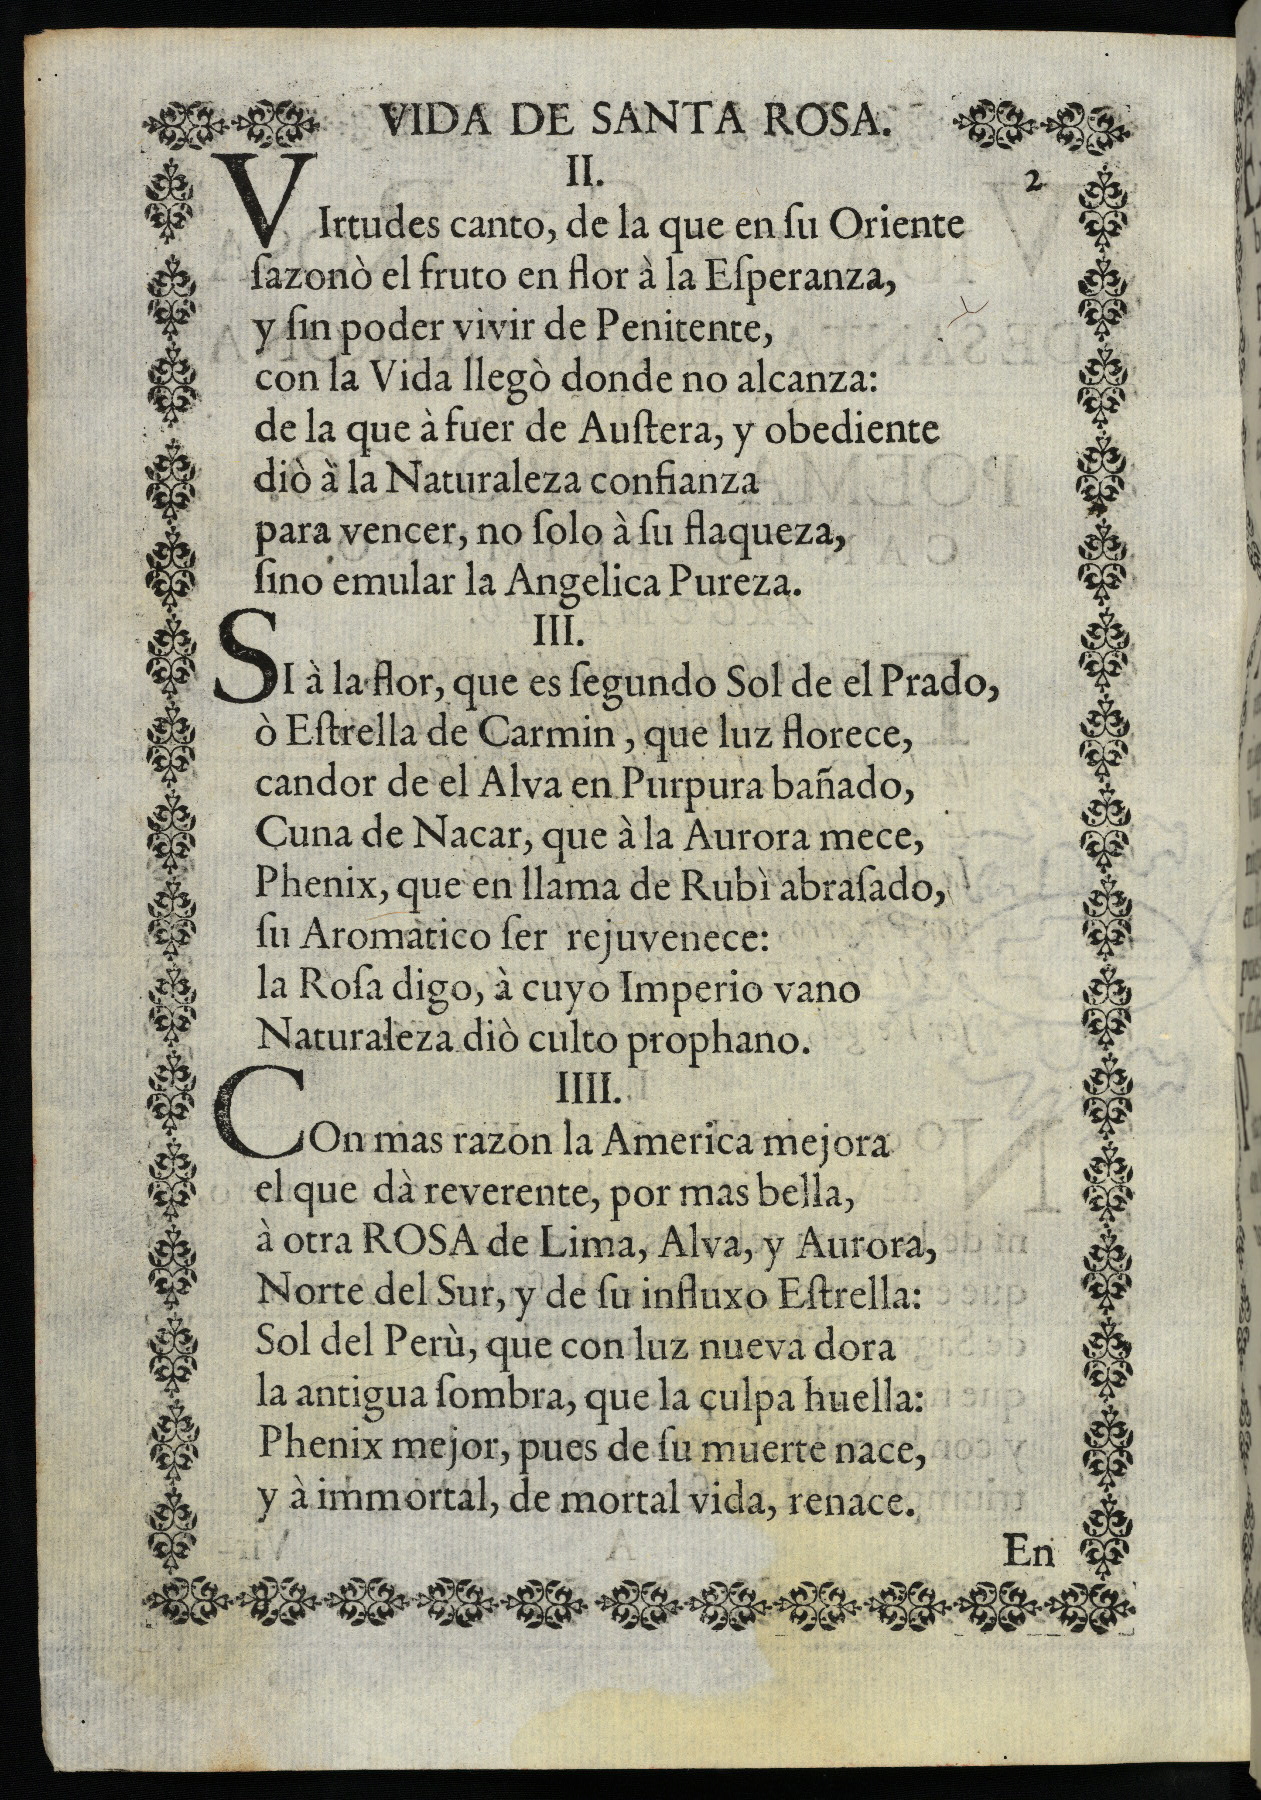 VIDA DE SANTA ROSA.
II.
2
VIrtudes canto, de la que en ſu Oriente
ſazonò el fruto en flor à la Eſperanza,
y ſin poder vivir de Penitente,
con la Vida llegò donde no alcanza:
de la que à fuer de Auſtera, y obediente
diò à la Naturaleza confianza
para vencer, no ſolo à ſu flaqueza,
ſino emular la Angelica Pureza.
III.
SI à la flor, que es ſegundo Sol de el Prado,
ò Eſtrella de Carmin , que luz florece,
candor de el Alva en Purpura bañado,
Cuna de Nacar, que à la Aurora mece,
Phenix, que en llama de Rubì abraſado,
ſu Aromatico ſer rejuvenece:
la Roſa digo, à cuyo Imperio vano
Naturaleza diò culto prophano.
IIII.
COn mas razon la America mejora
el que dà reverente, por mas bella,
à otra ROSA de Lima, Alva, y Aurora,
Norte del Sur, y de ſu influxo Eſtrella:
Sol del Perù, que con luz nueva dora
la antigua ſombra, que la culpa huella:
Phenix mejor, pues de ſu muerte nace,
y à immortal, de mortal vida, renace.
En